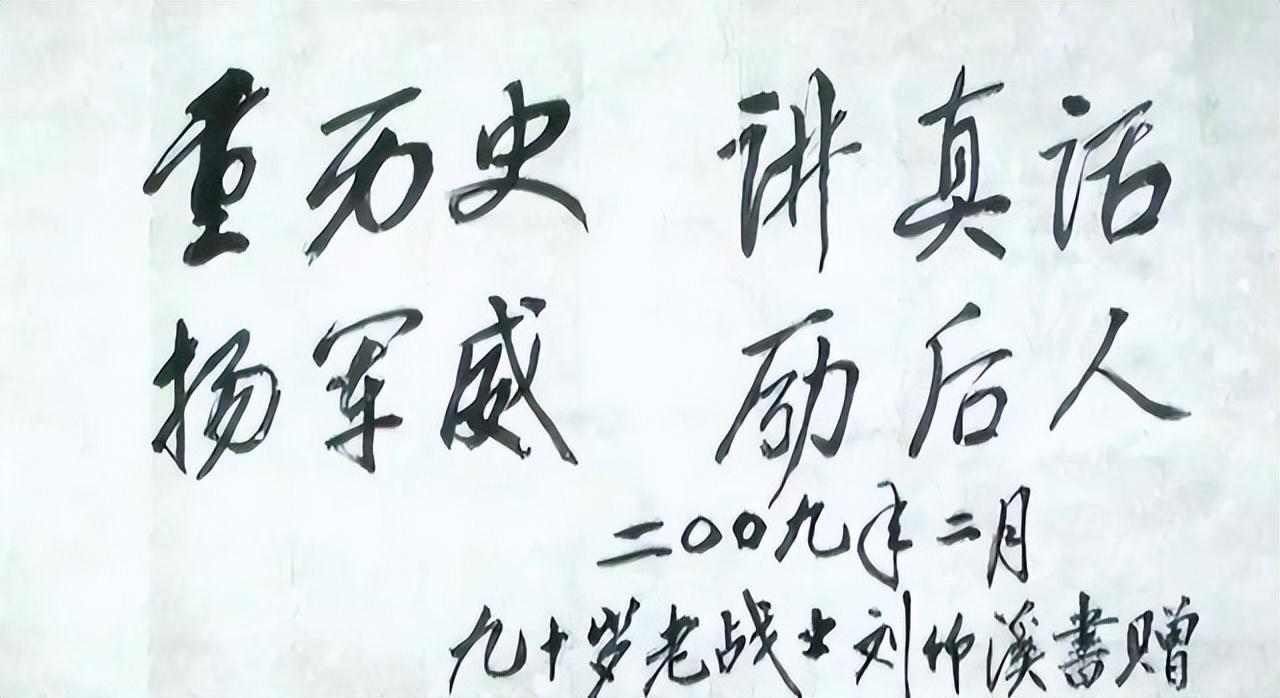 重历史 讲真话
扬军威 励后人
二〇〇九年二月
九十岁老战士刘竹溪書赠